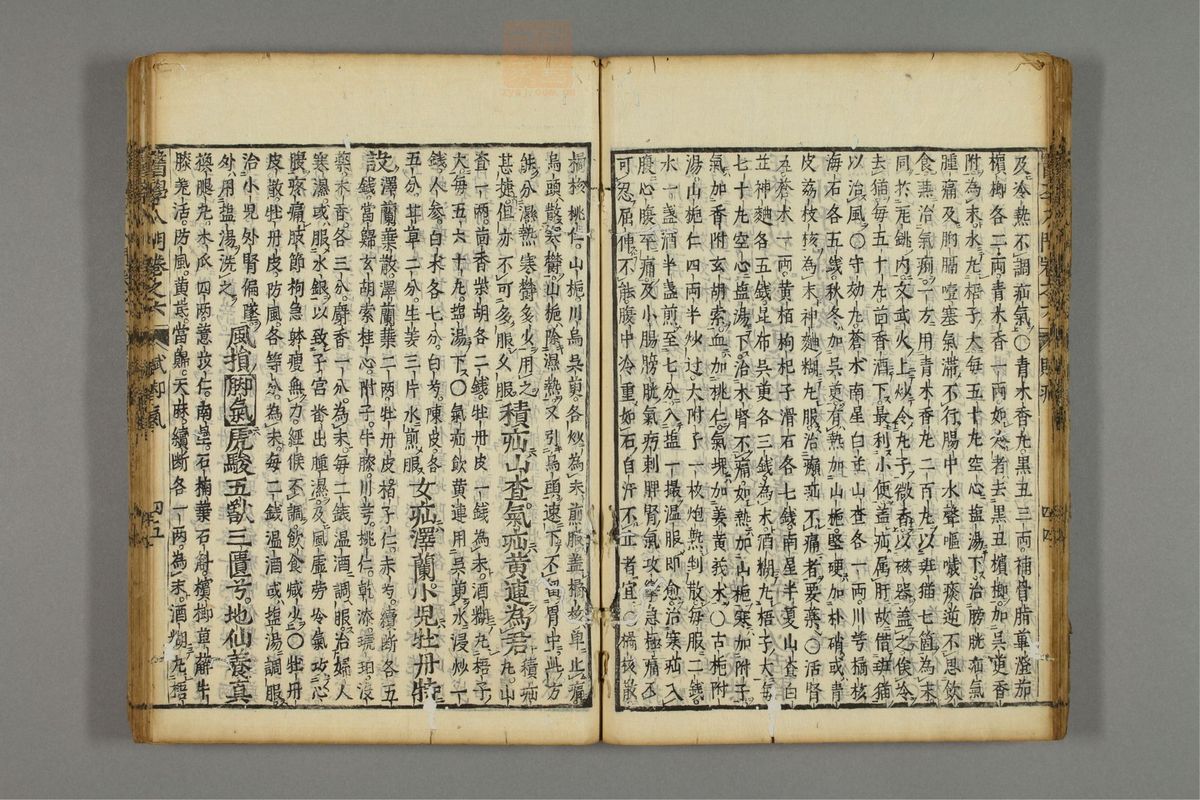 及冷熱不調疝氣○青木香丸黑丑三兩補骨脂蓽澄茄
檳榔各二兩青木香一兩如虛者去黑丑檳榔加吳茰香
附為末水丸梧子大每五十丸空心塩湯下治膀胱疝氣
腫痛及胸膈噎塞氣滯不行腸中水聲嘔噦痰逆不思飲
食兼治氣痢一方用青木香丸二百丸以班猫七箇為末
同於銚內文武火上炒令丸子微香以磁器盖之俟冷
去猫每五十丸茴香酒下最利小便盖疝属肝故借班猫
以治風○守効丸蒼朮南星白芷山查各一兩川芎橘核
海石各五錢秋冬加吳茰有熱加山梔堅硬加朴硝或青
皮荔枝核為末神麯糊丸服治㿗疝不痛者要藥○活腎
丸蒼朮一兩黃栢枸杞子滑石各七錢南星半夏山查白
芷神麯各五錢昆布吳茰各三錢為末酒糊丸梧子大每
七十丸空心塩湯下治木腎不痛如熱加山梔寒加附子
氣加香附玄胡索血加桃仁氣塊加姜黃莪朮○古梔附
湯山梔仁四兩半炒过大附子一枚炮熟剉散每服二錢
水一盞酒半盞煎至七分入塩一撮温服即愈治寒疝入
腹心腹卒痛及小腸膀胱氣疞刺脾腎氣攻攣急極痛不
可忍屈伸不能腹中冷重如石自汗不止者宜 橘核散
橘核桃仁山梔川烏吳茰各炒為末煎服盖橘核单止痛
烏頭散寒欝山梔除濕熱又引烏頭速下不留胃中此方
能分濕熱寒欝多少用之積疝山查氣疝黃連為君
甚捷但亦不可多服久服 丸山
查一兩茴香柴胡各二錢牡丹皮一錢為末酒糊丸梧子
大每五六十丸塩湯下○氣疝飲黃連用吳茰水浸炒一
錢人參白朮各七分白芍陳皮各
五分甘草二分生姜三片水煎服女疝澤蘭小兒牡丹特
設澤蘭葉散澤蘭葉二兩牡丹皮梔子仁赤芍續斷各五
錢當歸玄胡索桂心附子牛膝川芎桃仁乾漆琥珀沒
藥木香各三分麝香一分為末每二錢温酒調服治婦人
寒濕或服水銀以致子宮𣎴出腫濕及風虛勞冷氣攻心
腹疼痛肢節拘急體瘦無力經候不調飲食減少○牡丹
皮散牡丹皮防風各等分為末每二錢温酒或塩湯調服
治小兒外腎偏墜
外用塩湯洗之風損脚氣虎骏五獸三匱兮地仙養真
換腿丸木瓜四兩薏苡仁南星石楠葉石斛檳榔萆薢牛
膝羌活防風黃芪當歸天麻續断各一兩為末酒糊丸梧